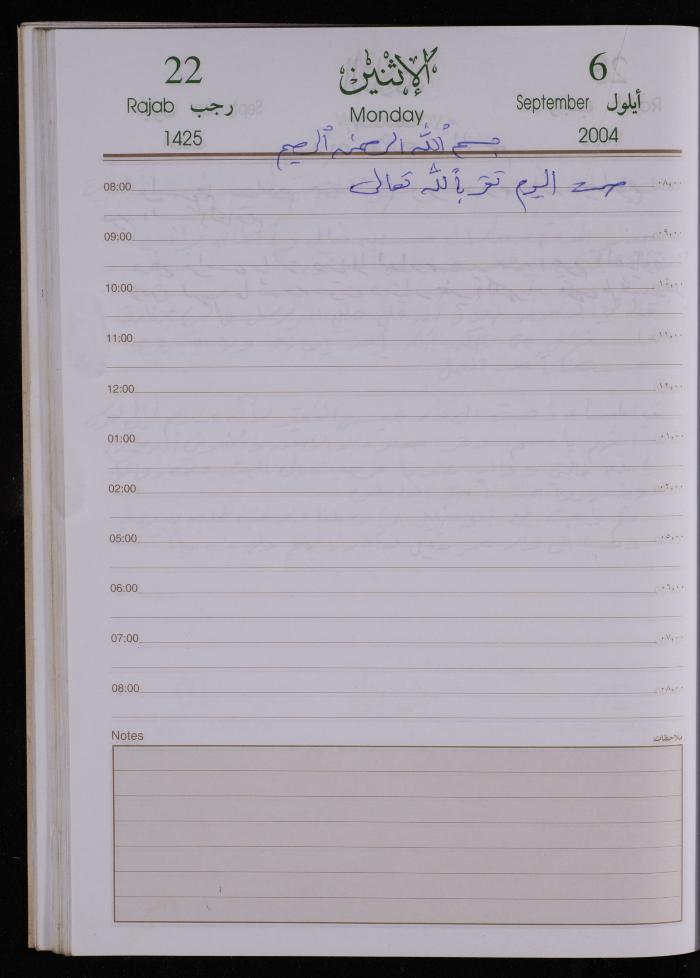 22 الإثنين 6
Rajab رجب Monday September أيلول
1425 2004
بسم الله الرحمن الرحيم
08:00 صمت اليوم تقرباً لله تعالى ٠٨,٠٠
09:00 ٠٩,٠٠
10:00 ١٠,٠٠
11:00 ١١,٠٠
12:00 ١٢,٠٠
01:00 ٠١,٠٠
02:00 ٠٢,٠٠
05:00 ٠٥,٠٠
06:00 ٠٦,٠٠
07:00 ٠٧,٠٠
08:00 ٠٨,٠٠
Notes ملاحظات